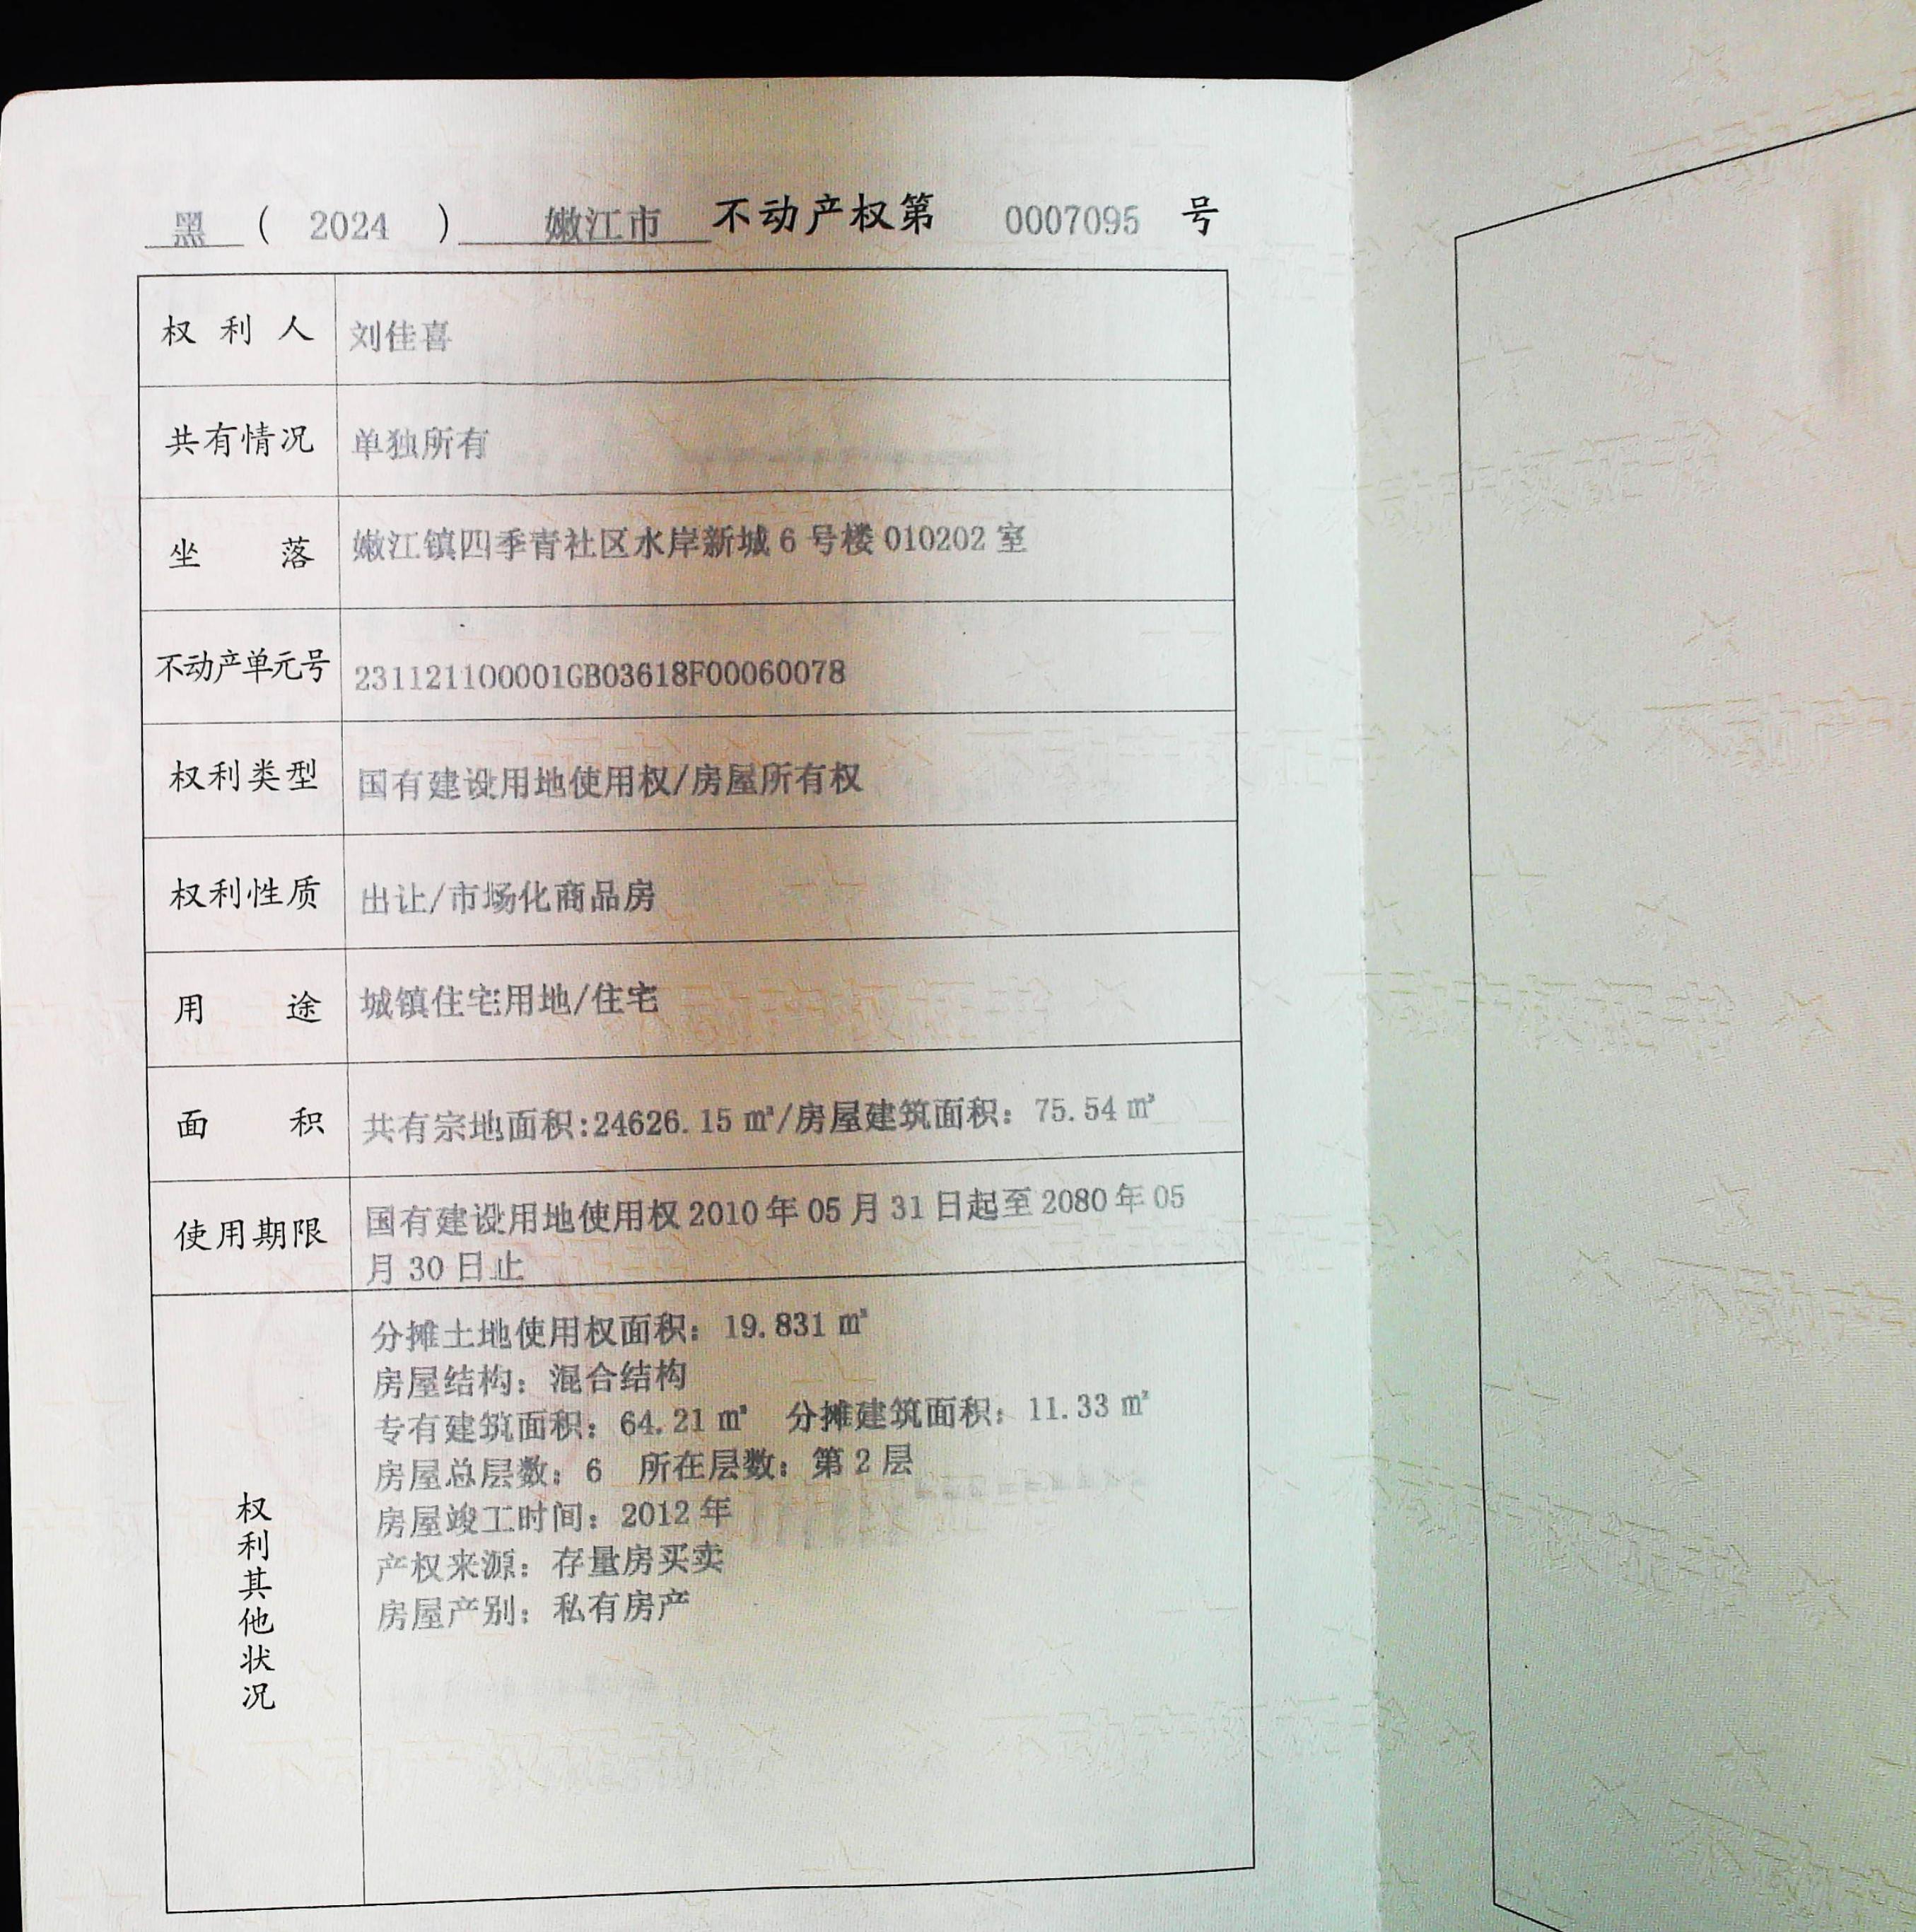 黑 ( 2024 ) 嫩江市 不动产权第 0007095 号
权利人 刘佳喜
共有情况 单独所有
坐落 嫩江镇四季青社区水岸新城 6 号楼 010202 室
不动产单元号 231121100001GB03618F00060078
权利类型 国有建设用地使用权/房屋所有权
权利性质 出让/市场化商品房
用途 城镇住宅用地/住宅
面积 共有宗地面积:24626.15 ㎡/房屋建筑面积：75.54 ㎡
使用期限 国有建设用地使用权 2010 年 05 月 31 日起至 2080 年 05
月 30 日止
权利其他状况
分摊土地使用权面积：19.831 ㎡
房屋结构：混合结构
专有建筑面积：64.21 ㎡ 分摊建筑面积：11.33 ㎡
房屋总层数：6 所在层数：第 2 层
房屋竣工时间：2012 年
产权来源：存量房买卖
房屋产别：私有房产